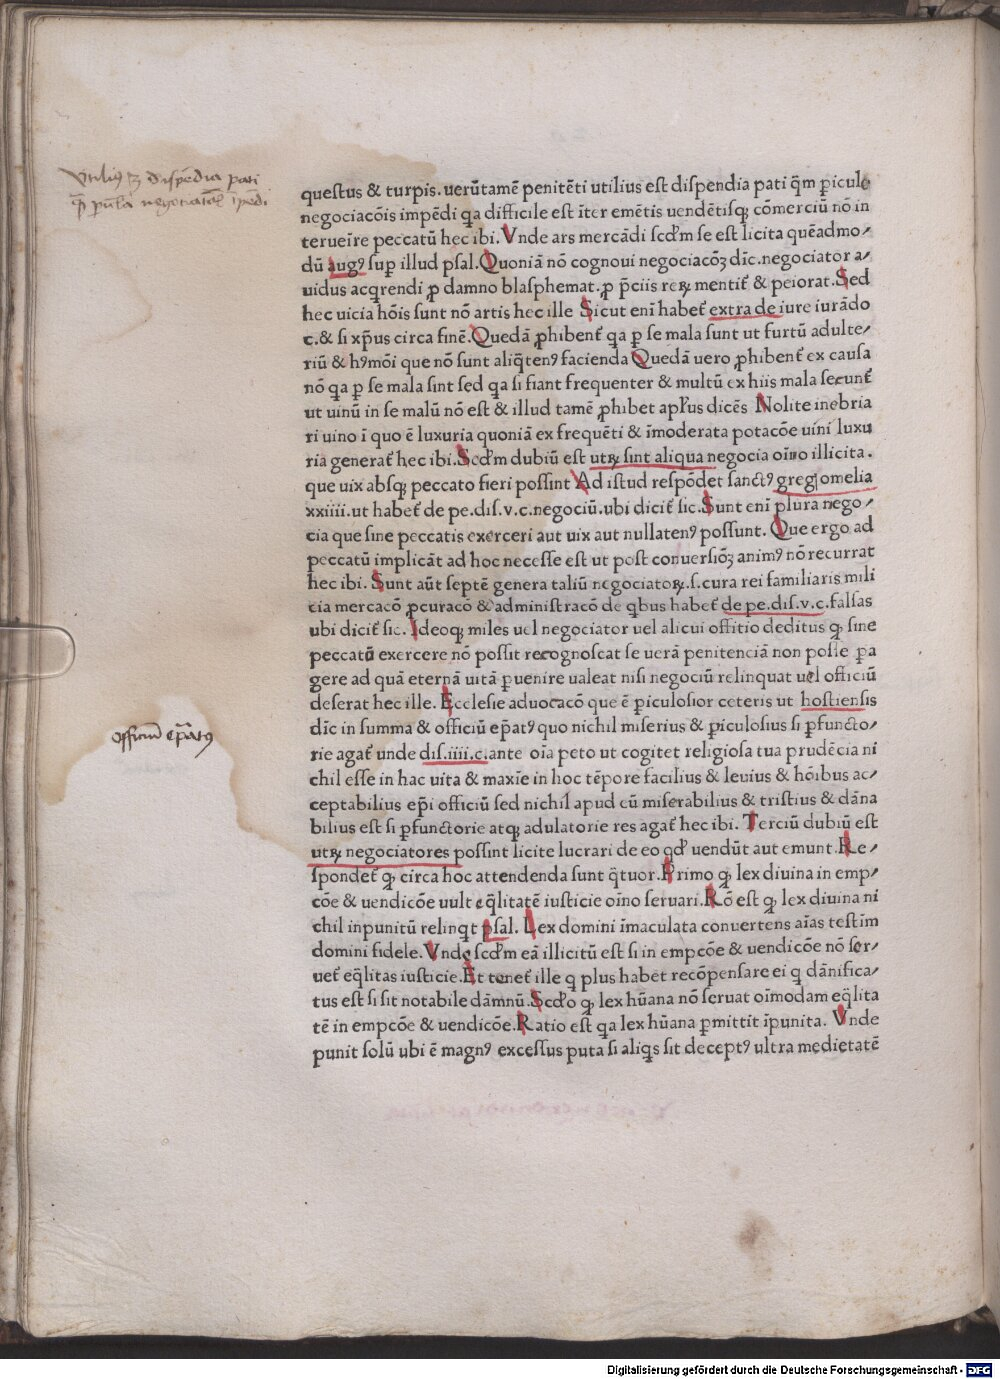 Vtiliꝰ ē dispēdia pati
q̄ꝫ ꝑicl̄a negociatōis īpedi
questus & turpis. uerūtamē penitēti utilius est dispendia pati q̄m ꝑiculo
negociacōis impēdi qa difficile est īter emētis uendētisqꝫ cōmerciū nō in
terueīre peccatū hec ibi. Vnde ars mercādi scd̄m se est licita quēadmo⸗
dū augꝰ suꝑ illud psal. Quoniā nō cognoui negociacōꝫ dīc. negociator a⸗
uidus acq̄rendi ꝓ damno blasphemat. ꝓ p̄ciis reꝝ mentit̄ & peiorat. Sed
hec uicia hōis sunt nō artis hec ille Sicut enī habet̄ extra de iure iurādo
c. & si xp̄us circa finē. Quedā ꝓhibent̄ qa ꝑ se mala sunt ut furtū adulte⸗
riū & hꝰmōi que nō sunt aliq̄tenꝰ facienda Quedā uero ꝓhibent̄ ex causa
nō qa ꝑ se mala sint sed qa si fiant frequenter & multū ex hiis mala secunt̄
ut uinū in se malū nō est & illud tamē ꝓhibet apl̄us dicēs Nolite inebria
ri uino ī quo ē luxuria quoniā ex frequēti & īmoderata potacōe uini luxu
ria generat̄ hec ibi. Scd̄m dubiū est utꝝ sint aliqua negocia oīno illicita.
que uix absqꝫ peccato fieri possint Ad istud respōdet sanctꝰ greg omelia
xxiiii. ut habet̄ de pe. dis. v. c. negociū. ubi dicit̄ sic. Sunt enī plura nego⸗
cia que sine peccatis exerceri aut uix aut nullatenꝰ possunt. Que ergo ad
peccatū implicāt ad hoc necesse est ut post conuersiōꝫ animꝰ nō recurrat
hec ibi. Sunt aūt septē genera taliū negociatoꝝ. s. cura rei familiaris mili
cia mercacō ꝓcuracō & administracō de qbus habet̄ de pe. dis. v. c. falsas
ubi dicit̄ sic. Ideoqꝫ miles uel negociator uel alicui offitio deditus qꝫ sine
peccatū exercere nō possit recognoscat se uerā penitenciā non posse ꝑa
gere ad quā eternā uitā ꝑuenire ualeat nisi negociū relinquat uel officiū
deserat hec ille. Ecclesie aduocacō que ē ꝑiculosior ceteris ut hostiensis
dīc in summa & officiū ep̄atꝰ quo nichil miserius & ꝑiculosius si ꝑfuncto⸗
rie agat̄ unde dis. iiii. c. ante oīa peto ut cogitet religiosa tua prudēcia ni
chil esse in hac uita & maxīe in hoc tēpore facilius & leuius & hōibus ac⸗
ceptabilius ep̄i officiū sed nichil apud eū miserabilius & tristius & dāna
bilius est si ꝑfunctorie atqꝫ adulatorie res agat̄ hec ibi. Terciū dubiū est
utꝝ negociatores possint licite lucrari de eo qd̄ uendūt aut emunt. Re⸗
spondet̄ qꝫ circa hoc attendenda sunt q̄tuor. Primo qꝫ lex diuina in emp⸗
cōe & uendicōe uult eq̄litatē iusticie oīno seruari. Rō est qꝫ lex diuina ni
chil inpunitū relinqt psal. Lex domini īmaculata conuertens aīas testīm
domini fidele. Vnde scd̄m eā illicitū est si in empcōe & uendicōe nō ser⸗
uet̄ eq̄litas iusticie. Et tenet̄ ille q plus habet recōpensare ei q dānifica⸗
tus est si sit notabile dāmnū. Scd̄o qꝫ lex hūana nō seruat oīmodam eq̄lita
tē in empcōe & uendicōe. Ratio est qa lex hūana ꝑmittit īpunita. Vnde
punit solū ubi ē magnꝰ excessus puta si aliq̄s sit deceptꝰ ultra medietatē
Officiū ep̄atꝰ
Digitalisierung gefördert durch die Deutsche Forschungsgemeinschaft - DFG